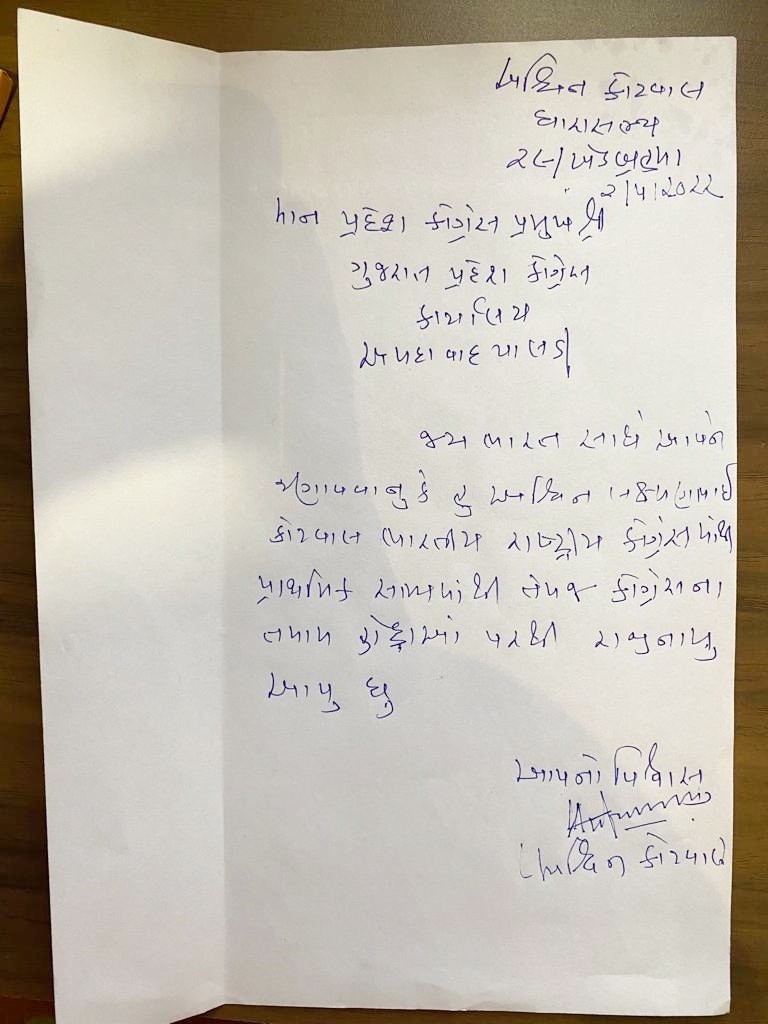 અશ્વિન કોટવાલ
ધારાસભ્ય
૨૯/ખેડબ્રહ્મા
૨/૫/૨૦૨૨
માન પ્રદેશ કોંગ્રેસ પ્રમુખ શ્રી
ગુજરાત પ્રદેશ કોંગ્રેસ
કાર્યાલય
અમદાવાદ પાલડી
જય ભારત સાથે આપને
જણાવવાનુ કે હુ અશ્વિન લક્ષ્મણભાઈ
કોટવાલ ભારતીય રાષ્ટ્રીય કોંગ્રેસમાંથી
પ્રાથમિક સભ્યપદથી તેમજ કોંગ્રેસના
તમામ હોદ્દાઓ પરથી રાજીનામુ
આપુ છુ
આપનો વિશ્વાસુ
અશ્વિન કોટવાલ